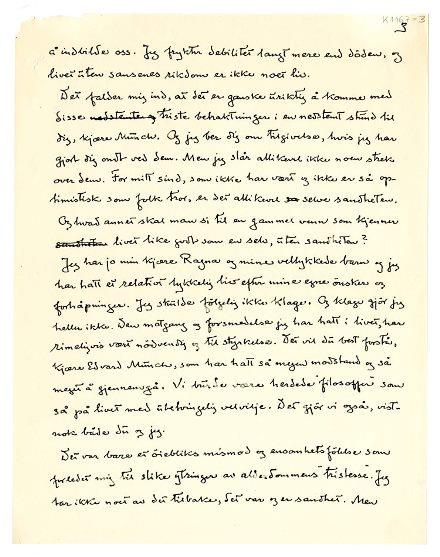 K 1167-3
3
å indbilde oss. Jeg frykter debilitet langt mere end døden, og
livet uten sansenes rikdom er ikke noet liv.
Det falder mig ind, at det er ganske uriktig å komme med
disse nedstemte og triste betraktninger i en nedstemt stund til
dig, kjære Munch. Og jeg ber dig om tilgivelse, hvis jeg har
gjort dig ondt ved dem. Men jeg slår allikevel ikke noen strek
over dem. For mitt sind, som ikke har vært og ikke er så op-
timistisk som folk tror, er det allikevel selve sandheten.
Og hvad annet skal man si til en gammel venn som kjenner
livet like godt som en selv, uten sandheten?
Jeg har jo min kjære Ragna og mine vellykkede barn og jeg
har hatt et relativt lykkelig liv efter mine egne ønsker og
forhåpninger. Jeg skulde følgelig ikke klage. Og klage gjør jeg
heller ikke. Den motgang og forsmedelse jeg har hatt i livet, har
rimeligvis vært nødvendig og til styrkelse. Det vil du best forstå,
kjære Edvard Munch, som har hatt så megen modstand og så
meget å gjennemgå. Vi burde være herdede "filosoffer" som
så på livet med ubetvingelig velvilje. Det gjør vi også, vist-
nok både du og jeg.
Det var bare et øiebliks mismod og ensomhetsfølelse som
forledet mig til slike ytringer av alderdommens "tristesse". Jeg
tar ikke noet av det tilbake, det var og er sandhet. Men